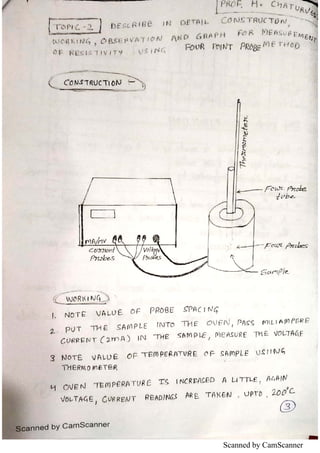 PROF. H. CHATURVE
TOPIC-2 DESCRIBE IN DETAIL CONSTRUCTON,
WORKING, OBSERVATION AND GRAPH FOR MEASUREMENT
OF RESISTIVITY USING FOUR POINT PROBE METHOD
CONSTRUCTION -
Thermometer
Four probe
tube
MA/MV
Current
Probes
Voltage
Probes
Four Probes
Sample
WORKING
1. NOTE VALUE OF PROBE SPACING
2. PUT THE SAMPLE INTO THE OVEN, PASS MILIAMPERE
CURRENT (2mA) IN THE SAMPLE, MEASURE THE VOLTAGE
3 NOTE VALUE OF TEMPERATURE OF SAMPLE USIING
THERMOMETER
4 OVEN TEMPERATURE IS INCREASED A LITTLE, AGAIN
VOLTAGE, CURRENT READINGS ARE TAKEN, UPTO, 200°C
3
Scanned by CamScanner
Scanned by CamScanner